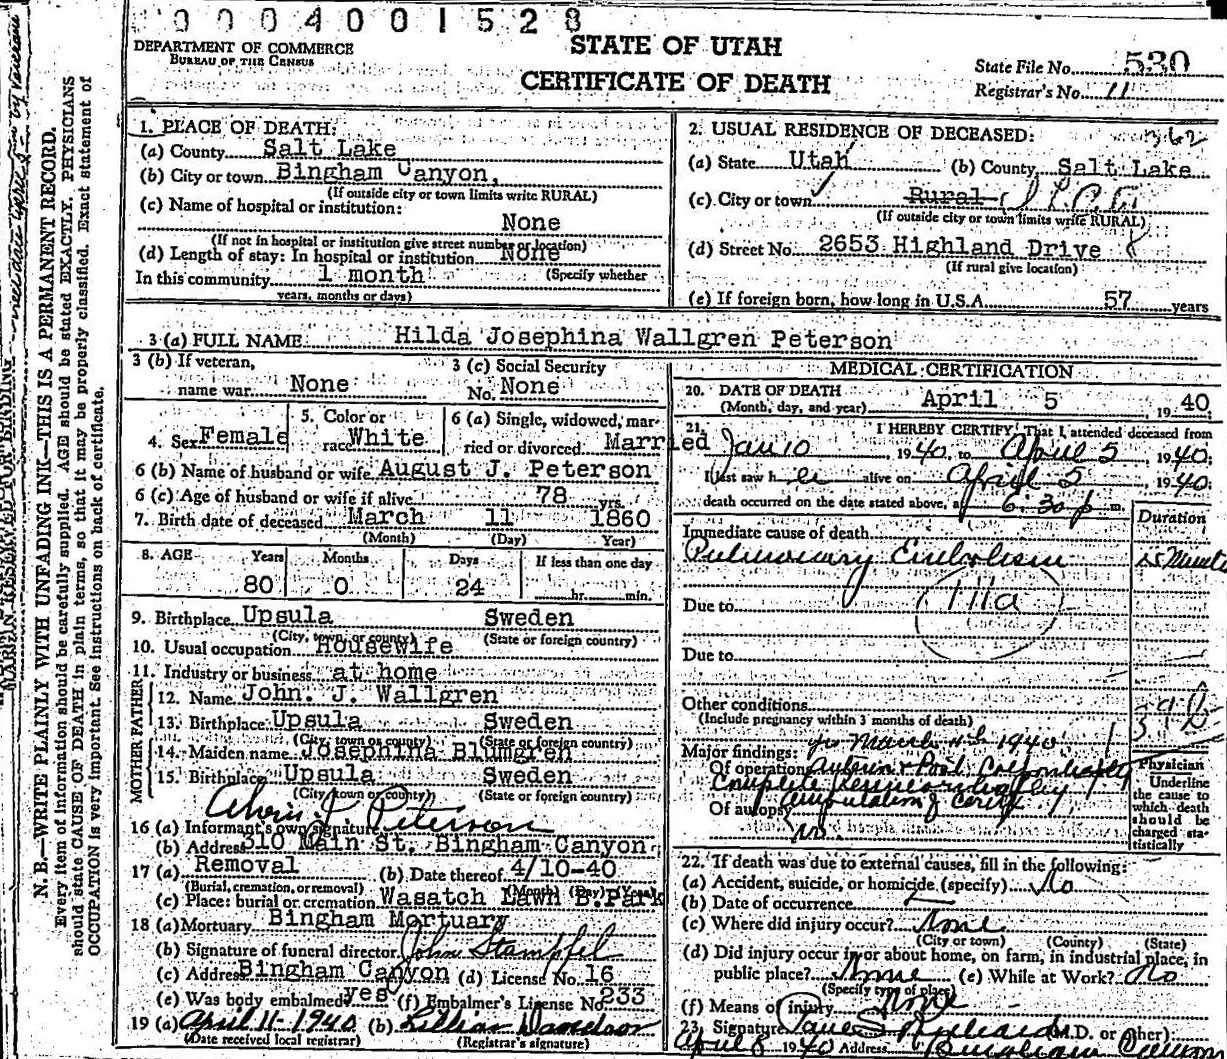 0004001528
DEPARTMENT OF COMMERCE
BUREAU OF THE CENSUS
STATE OF UTAH
CERTIFICATE OF DEATH
State File No. 530
Registrar's No. 11
N.B.—WRITE PLAINLY WITH UNFADING INK—THIS IS A PERMANENT RECORD.
Every item of information should be carefully supplied. AGE should be stated EXACTLY. PHYSICIANS
should state CAUSE OF DEATH in plain terms, so that it may be properly classified. Exact statement of
OCCUPATION is very important. See instructions on back of certificate.
1. PLACE OF DEATH:
(a) County Salt Lake
(b) City or town Bingham Canyon,
(If outside city or town limits write RURAL)
(c) Name of hospital or institution:
None
(If not in hospital or institution give street number or location)
(d) Length of stay: In hospital or institution None
In this community 1 month (Specify whether
years, months or days)
2. USUAL RESIDENCE OF DECEASED: 362
(a) State Utah (b) County Salt Lake
(c) City or town Rural
(If outside city or town limits write RURAL)
(d) Street No. 2653 Highland Drive
(If rural give location)
(e) If foreign born, how long in U.S.A. 57 years
3 (a) FULL NAME Hilda Josephina Wallgren Peterson
3 (b) If veteran,
name war None
3 (c) Social Security
No. None
4. Sex Female
5. Color or
race White
6 (a) Single, widowed, mar-
ried or divorced Married
6 (b) Name of husband or wife August J. Peterson
6 (c) Age of husband or wife if alive 78 yrs.
7. Birth date of deceased March 11 1860
(Month) (Day) Year)
8. AGE Years Months Days If less than one day
80 0 24 hr. min.
9. Birthplace Upsula Sweden
(City, town, or county) (State or foreign country)
10. Usual occupation Housewife
11. Industry or business at home
FATHER
12. Name John. J. Wallgren
13. Birthplace Upsula Sweden
(City, town or county) (State or foreign country)
MOTHER
14. Maiden name Josephina Blumgren
15. Birthplace Upsula Sweden
(City, town or county) (State or foreign country)
16 (a) Informant's own signature Alvin J. Peterson
(b) Address 310 Main St. Bingham Canyon
17 (a) Removal (b) Date thereof 4/10-40
(Burial, cremation, or removal) (Month) (Day) (Year)
(c) Place: burial or cremation Wasatch Lawn B. Park
18 (a) Mortuary Bingham Mortuary
(b) Signature of funeral director John Stampfel
(c) Address Bingham Canyon (d) License No. 16
(e) Was body embalmed? yes (f) Embalmer's License No. 233
19 (a) April 11-1940 (b) Lillian Davidson
(Date received local registrar) (Registrar's signature)
MEDICAL CERTIFICATION
20. DATE OF DEATH
(Month, day, and year) April 5 1940
21. I HEREBY CERTIFY That I attended deceased from
Jan 10 1940 to April 5 1940;
I last saw her alive on April 5 1940;
death occurred on the date stated above, a 6:30 p m.
Duration
Immediate cause of death
Pulmonary Embolism
Due to 111a
Due to
Other conditions
(Include pregnancy within 3 months of death)
Major findings: March 4th 1940
Of operation
Complete
Of autopsy Amputation of cervix
no
Physician
Underline
the cause to
which death
should be
charged sta-
tistically
22. If death was due to external causes, fill in the following:
(a) Accident, suicide, or homicide (specify) No
(b) Date of occurrence
(c) Where did injury occur? None
(City or town) (County) (State)
(d) Did injury occur in or about home, on farm, in industrial place, in
public place? None (e) While at Work? No
(Specify type of place)
(f) Means of injury None
23. Signature Paul S. Richards M.D. or (other)
April 8 1940 Address Bingham Canyon